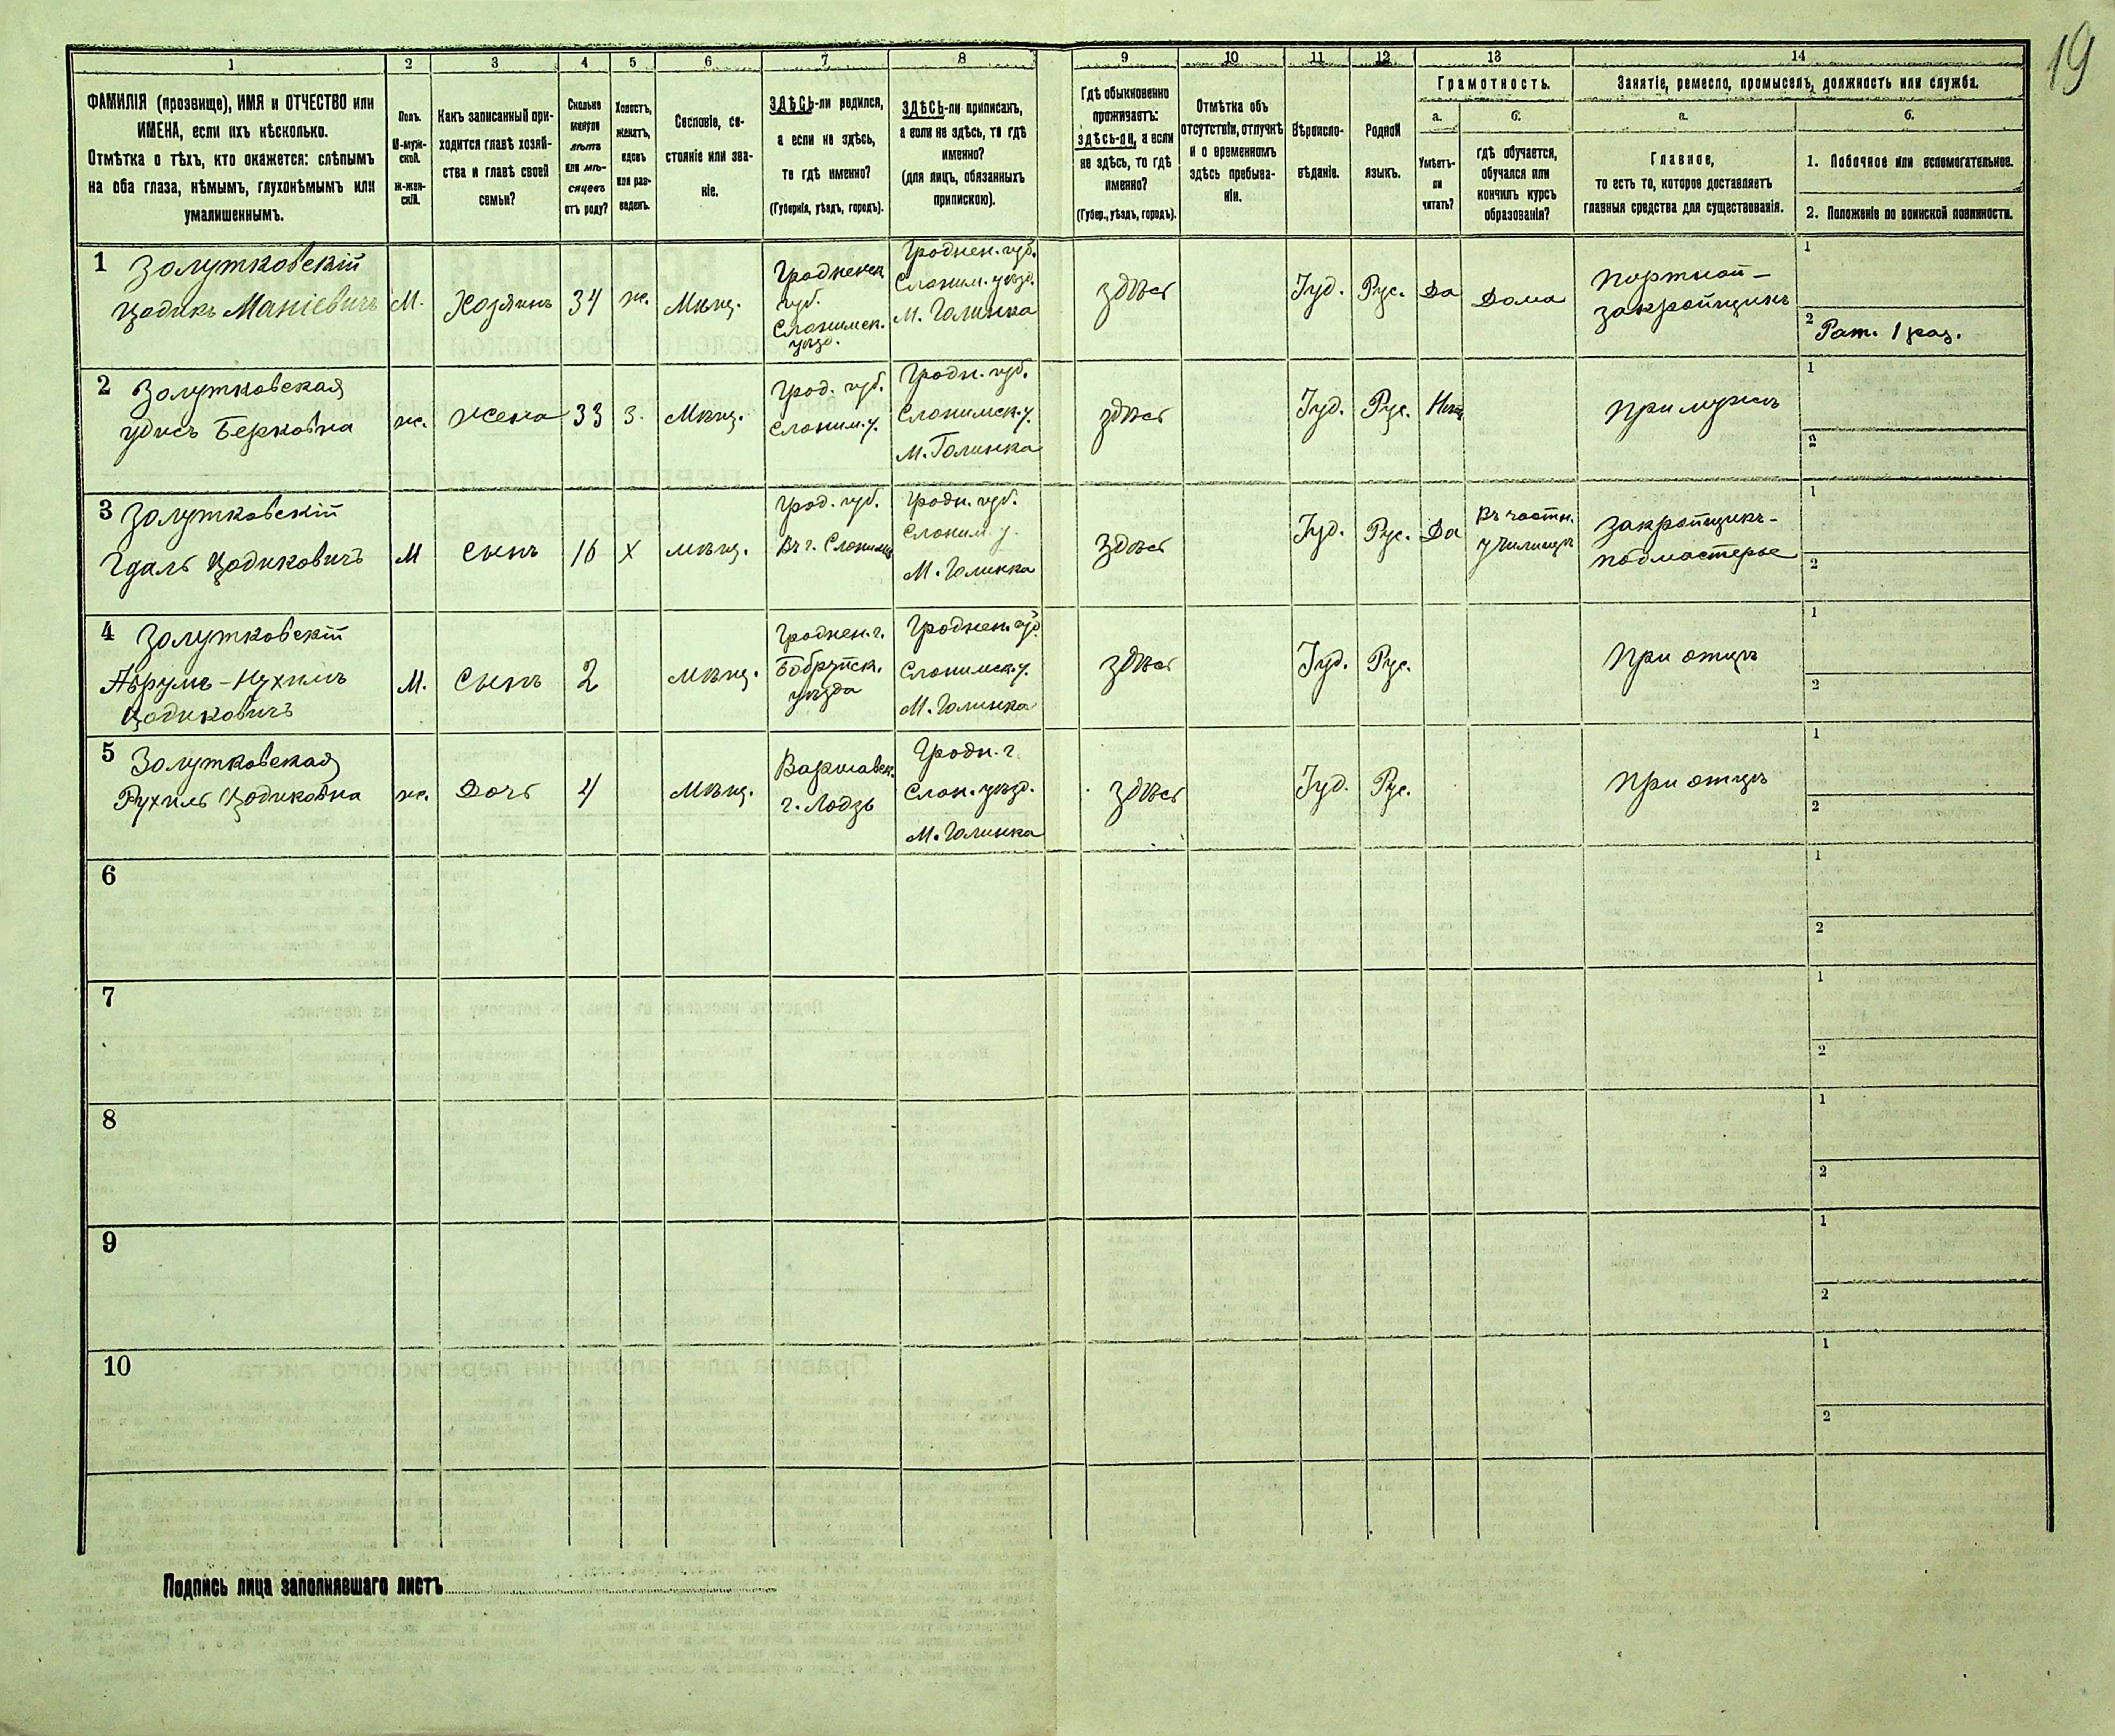 19
1 2 3 4 5 6 7 8 9 10 11 12 13 14
ФАМИЛІЯ (прозвище), ИМЯ и ОТЧЕСТВО или
ИМЕНА, если ихъ нѣсколько.
Отмѣтка о тѣхъ, кто окажется: слѣпымъ
на оба глаза, нѣмымъ, глухонѣмымъ или
умалишеннымъ.
Полъ.
М-муж-
ской.
Ж-жен-
скій.
Какъ записанный при-
ходится главѣ хозяй-
ства и главѣ своей
семьи?
Сколько
минуло
лѣтъ
или мѣ-
сяцевъ
отъ роду?
Холостъ,
женатъ,
вдовъ
или раз-
веденъ.
Сословіе, со-
стояніе или зва-
ніе.
ЗДѢСЬ-ли родился,
а если не здѣсь,
то гдѣ именно?
(Губернія, уѣздъ, городъ).
ЗДѢСЬ-ли приписанъ,
а если не здѣсь, то гдѣ
именно?
(для лицъ, обязанныхъ
припискою).
Гдѣ обыкновенно
проживаетъ:
здѣсь-ли, а если
не здѣсь, то гдѣ
именно?
(Губер., уѣздъ, городъ).
Отмѣтка объ
отсутствіи, отлучкѣ
и о временномъ
здѣсь пребыва-
ніи.
Вѣроиспо-
вѣданіе.
Родной
языкъ.
Грамотность.
а.
Умѣетъ-
ли
читать?
б.
гдѣ обучается,
обучался или
кончилъ курсъ
образованія?
Занятіе, ремесло, промыселъ, должность или служба.
а.
Главное,
то есть то, которое доставляетъ
главныя средства для существованія.
б.
1. Побочное или вспомогательное.
2. Положеніе по воинской повинности.
1 Золутковскій
Цодикъ Маніевичъ
М.
Хозяинъ
34
ж.
Мѣщ.
Гродненск
губ.
Слонимск.
уѣзд.
Гроднен. губ.
Слоним. уѣзд.
М. Голинка
здѣсь
Іуд.
Рус.
Да
Дома
Портной-
закройщикъ
1
2 Рат. 1 раз.
2 Золутковская
Удись Берковна
ж.
Жена
33
З.
Мѣщ.
Грод. губ.
Слоним. у.
Гродн. губ.
Слонимск. у.
М. Голинка
здѣсь
Іуд.
Рус.
Нѣтъ
При мужѣ
1
2
3 Золутковскій
Гдаль Цодиковичъ
М
Сынъ
16
Х
мѣщ.
Грод. губ.
Въ г. Слонимѣ
Гродн. губ.
Слоним. у.
М. Голинка
здѣсь
Іуд.
Рус.
Да
Въ частн.
училищѣ
Закройщикъ-
подмастерье
1
2
4 Золутковскій
Аврумъ-Нухимъ
Цодиковичъ
М.
Сынъ
2
мѣщ.
Гроднен. г.
Бобруйск.
уѣзда
Гроднен. губ.
Слонимск. у.
М. Голинка
здѣсь
Іуд.
Рус.
При отцѣ
1
2
5 Золутковская
Рухиль Цодиковна
ж.
Дочь
4
Мѣщ.
Варшавск.
г. Лодзь
Гродн. г.
Слон. уѣзд.
М. Голинка
здѣсь
Іуд.
Рус.
При отцѣ
1
2
6
1
2
7
1
2
8
1
2
9
1
2
10
1
2
Подпись лица заполнявшаго листъ